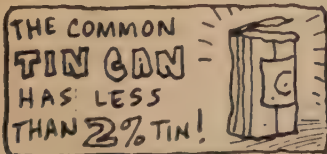 THE COMMON
TIN CAN
HAS LESS
THAN 2% TIN!